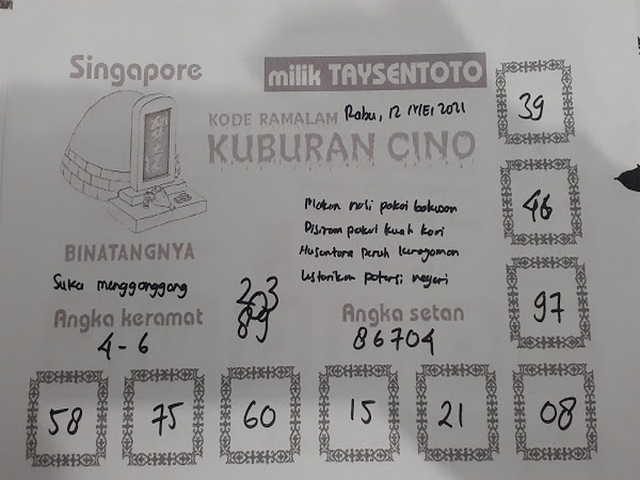 Singapore
milik TAYSENTOTO
KODE RAMALAM Rabu, 12 MEI 2021
KUBURAN CINO
39
46
97
Makan nasi pakai bakwan
Disiram pakai kuah kari
Nusantara penuh keragaman
Lestarikan potensi negeri
BINATANGNYA
Suka menggonggong
Angka keramat
4-6
Angka setan
86704
58 75 60 15 21 08